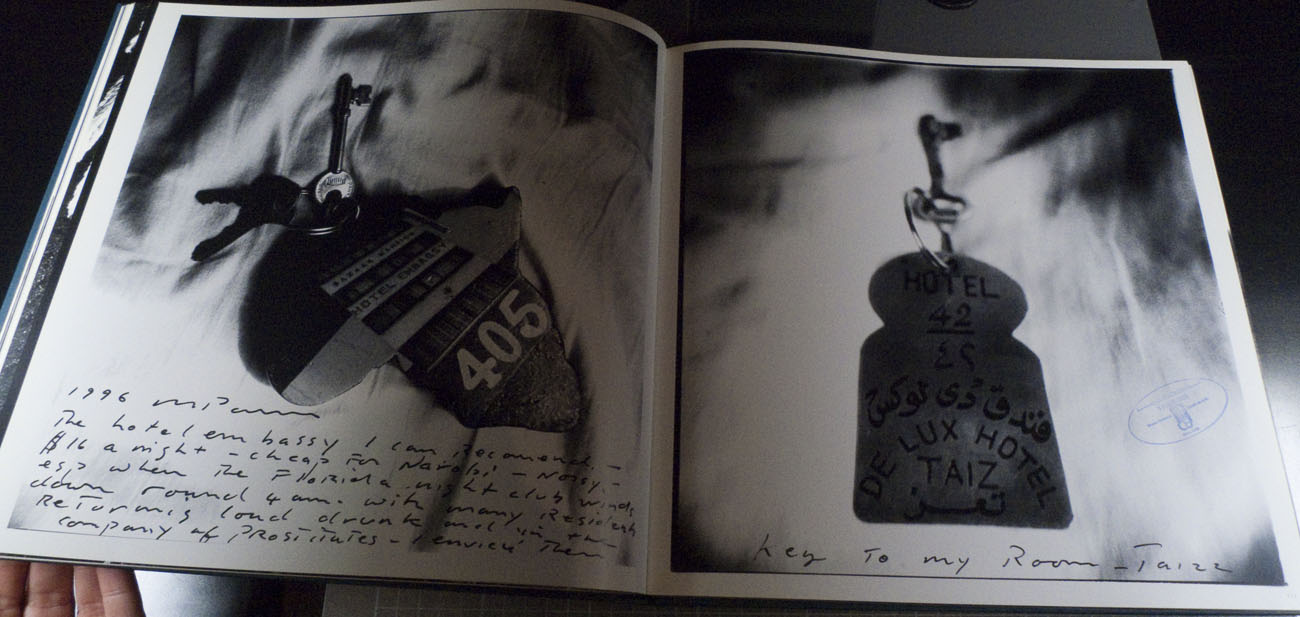 HOTEL EMBASSY
405
1996
The hotel embassy I can recomend -
$16 a night - cheap for Nairobi - Noisy -
esp when the Florida night club winds
down round 4 am. with many Residents
Returning loud drunk and in the
company of Prostitutes - I envied them
HOTEL
42
٤٢
فندق دي لوكس
DE LUX HOTEL
TAIZ
تعز
key To my Room - Taizz